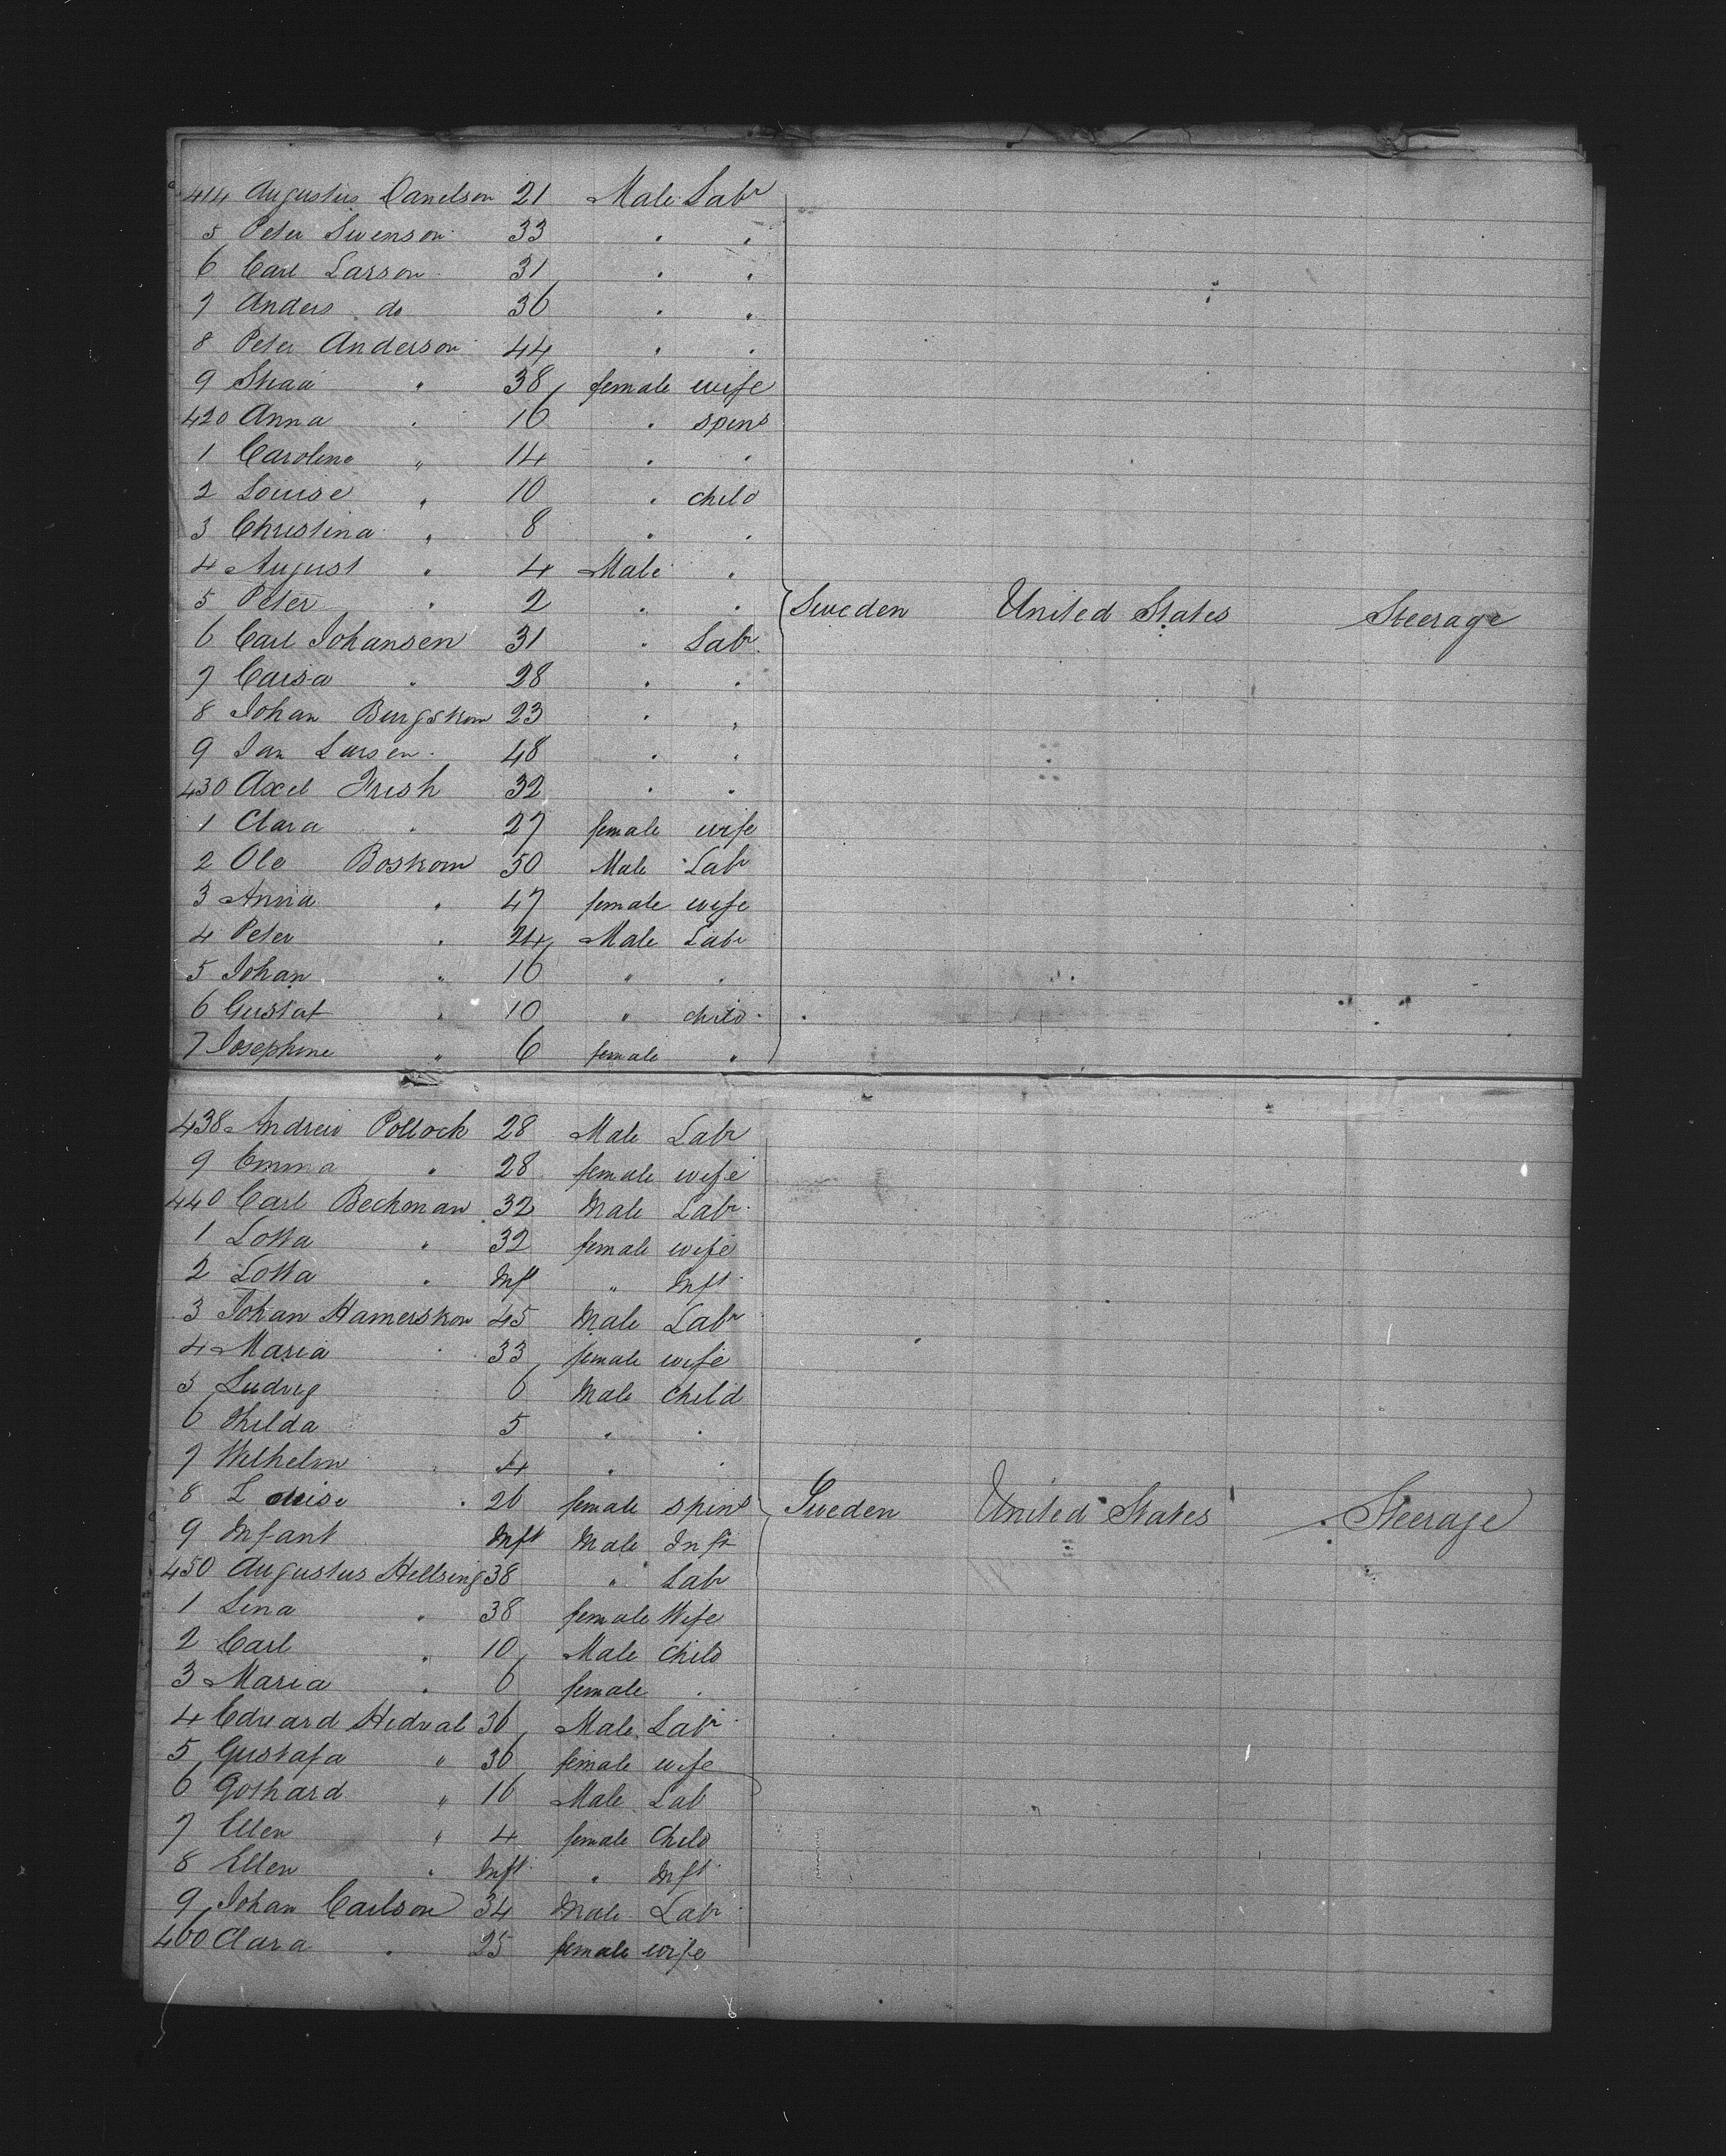 414 Augustus Danelson 21 Male Labr
5 Peter Swenson 33 " "
6 Carl Larson 31 " "
7 Anders do 36 " "
8 Peter Anderson 44 " "
9 " 38 female wife
420 Anna " 16 " spins
1 Caroline " 14 " "
2 Louise " 10 " child
3 Christina " 8 " "
4 August " 4 Male "
5 Peter " 2 " " Sweden United States Steerage
6 Carl Johansen 31 " Labr
7 Caisa " 28 " "
8 Johan Burgskom 23 " "
9 Jan Larsen 48 " "
430 Axel Frish 32 " "
1 Clara " 27 female wife
2 Ole Boskom 50 Male Labr
3 Anna " 47 female wife
4 Peter " 24 Male Labr
5 Johan " 16 " "
6 Gustaf " 10 " child
7 Josephine " 6 female "
438 Andrew Pollock 28 Male Labr
9 Emma " 28 female wife
440 Carl Beckman 32 Male Labr
1 Lotta " 32 female wife
2 Lotta " Inft " Inft
3 Johan Hamerskon 45 Male Labr
4 Maria " 33 female wife
5 Ludvig " 6 Male child
6 Thilda 5 " "
7 Wilhelm " 4 " "
8 Louise " 26 female spins Sweden United States Steerage
9 Infant Inft Male Inft
450 Augustus Hellsing 38 " Labr
1 Lina " 38 female Wife
2 Carl " 10 Male child
3 Maria " 6 female "
4 Edward Hedval 36 Male Labr
5 Gustafa " 36 female wife
6 Gothard " 16 Male Lab
7 Ellen " 4 female Child
8 Ellen " Inft " Inft
9 Johan Carlson 34 Male Labr
460 Clara " 25 female wife